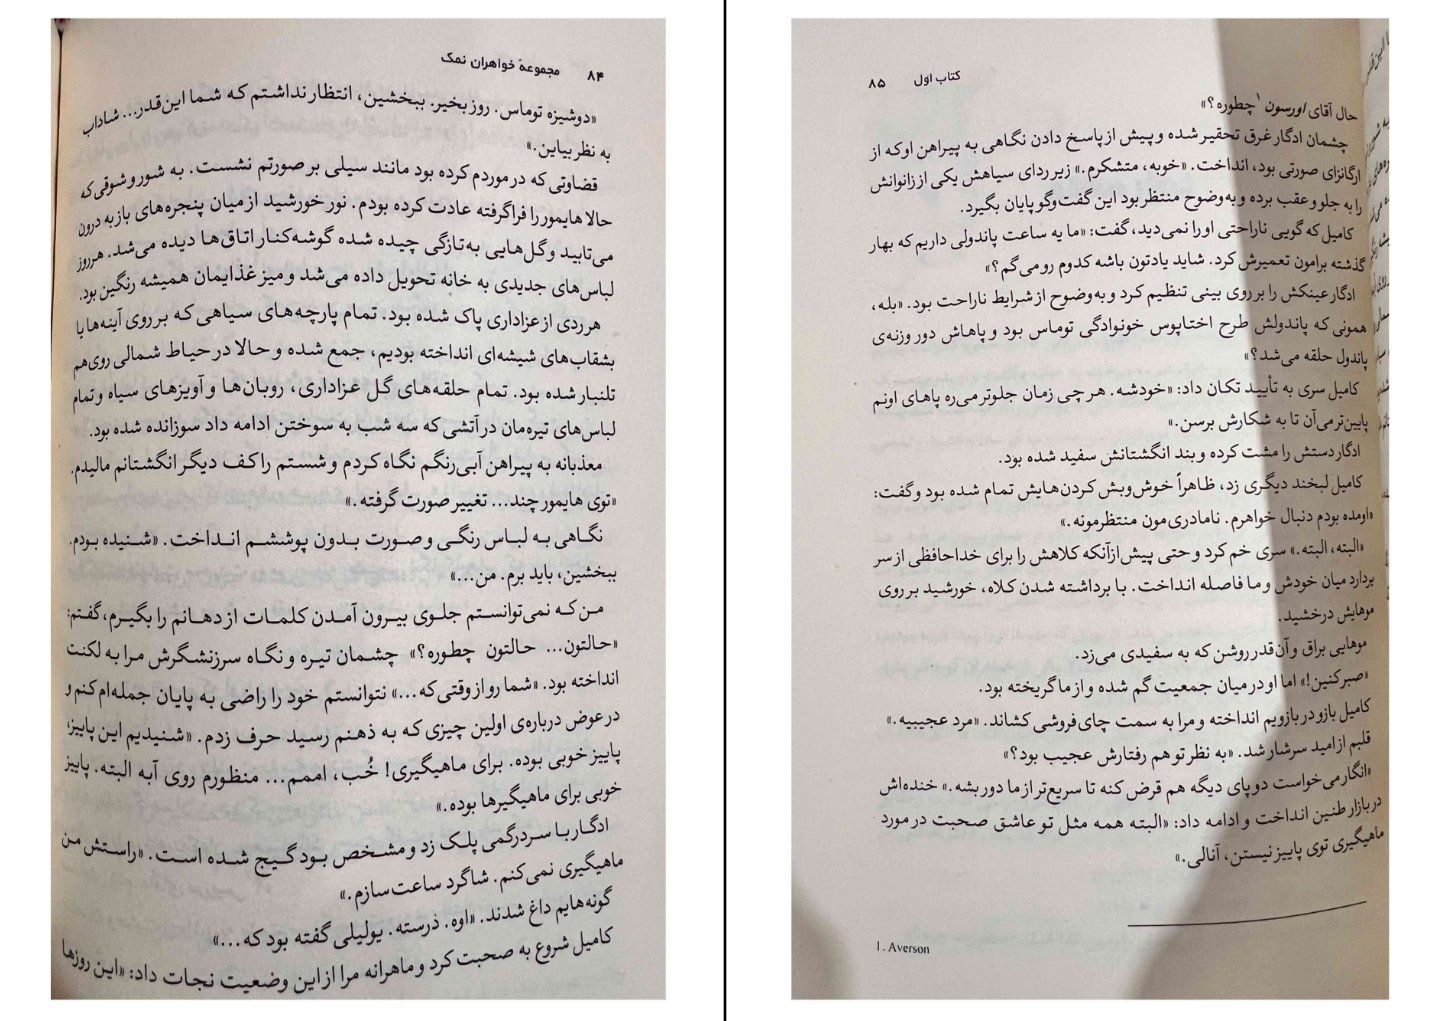 ۸۴ مجموعهٔ خواهران نمک
«دوشیزه توماس. روز بخیر. ببخشین، انتظار نداشتم که شما این‌قدر... شاداب
به نظر بیاین.»
قضاوتی که در موردم کرده بود مانند سیلی بر صورتم نشست. به شور و شوقی که
حالا هایمور را فرا گرفته عادت کرده بودم. نور خورشید از میان پنجره‌های باز به درون
می‌تابید و گل‌هایی به‌تازگی چیده شده گوشه‌کنار اتاق‌ها دیده می‌شد. هر روز
لباس‌های جدیدی به خانه تحویل داده می‌شد و میز غذایمان همیشه رنگین بود.
هر ردی از عزاداری پاک شده بود. تمام پارچه‌های سیاهی که بر روی آینه‌ها یا
بشقاب‌های شیشه‌ای انداخته بودیم، جمع شده و حالا در حیاط شمالی روی‌هم
تلنبار شده بود. تمام حلقه‌های گل عزاداری، روبان‌ها و آویزهای سیاه و تمام
لباس‌های تیره‌مان در آتشی که سه شب به سوختن ادامه داد سوزانده شده بود.
معذبانه به پیراهن آبی‌رنگم نگاه کردم و شستم را کف دیگر انگشتانم مالیدم.
«توی هایمور چند... تغییر صورت گرفته.»
نگاهی به لباس رنگی و صورت بدون پوششم انداخت. «شنیده بودم.
ببخشین، باید برم. من...»
من که نمی‌توانستم جلوی بیرون آمدن کلمات از دهانم را بگیرم، گفتم:
«حالتون... حالتون چطوره؟» چشمان تیره و نگاه سرزنشگرش مرا به لکنت
انداخته بود. «شما رو از وقتی که...» نتوانستم خود را راضی به پایان جمله‌ام کنم و
در عوض درباره‌ی اولین چیزی که به ذهنم رسید حرف زدم. «شنیدیم این پاییز،
پاییز خوبی بوده. برای ماهیگیری! خُب، اممم... منظورم روی آبه البته. پاییز
خوبی برای ماهیگیرها بوده.»
ادگار با سردرگمی پلک زد و مشخص بود گیج شده است. «راستش من
ماهیگیری نمی‌کنم. شاگرد ساعت‌سازم.»
گونه‌هایم داغ شدند. «اوه. ذرسته. یولیلی گفته بود که...»
کامیل شروع به صحبت کرد و ماهرانه مرا از این وضعیت نجات داد: «این روزها
کتاب اول ۸۵
حال آقای اورسون۱ چطوره؟»
چشمان ادگار غرق تحقیر شده و پیش از پاسخ دادن نگاهی به پیراهن او که از
ارگانزای صورتی بود، انداخت. «خوبه، متشکرم.» زیر ردای سیاهش یکی از زانوانش
را به جلو و عقب برده و به‌وضوح منتظر بود این گفت‌وگو پایان بگیرد.
کامیل که گویی ناراحتی او را نمی‌دید، گفت: «ما یه ساعت پاندولی داریم که بهار
گذشته برامون تعمیرش کرد. شاید یادتون باشه کدوم رو می‌گم؟»
ادگار عینکش را بر روی بینی تنظیم کرد و به‌وضوح از شرایط ناراحت بود. «بله،
همونی که پاندولش طرح اختاپوس خونوادگی توماس بود و پاهاش دور وزنه‌ی
پاندول حلقه می‌شد؟»
کامیل سری به تأیید تکان داد: «خودشه. هر چی زمان جلوتر می‌ره پاهای اونم
پایین‌تر می‌آن تا به شکارش برسن.»
ادگار دستش را مشت کرده و بند انگشتانش سفید شده بود.
کامیل لبخند دیگری زد، ظاهراً خوش‌وبش کردن‌هایش تمام شده بود و گفت:
«اومده بودم دنبال خواهرم. نامادری‌مون منتظرمونه.»
«البته، البته.» سری خم کرد و حتی پیش از آنکه کلاهش را برای خداحافظی از سر
بردارد میان خودش و ما فاصله انداخت. با برداشته شدن کلاه، خورشید بر روی
موهایش درخشید.
موهایی براق و آن‌قدر روشن که به سفیدی می‌زد.
«صبر کنین!» اما او در میان جمعیت گم شده و از ما گریخته بود.
کامیل بازو در بازویم انداخته و مرا به سمت چای‌فروشی کشاند. «مرد عجیبیه.»
قلبم از امید سرشار شد. «به نظر تو هم رفتارش عجیب بود؟»
«انگار می‌خواست دو پای دیگه هم قرض کنه تا سریع‌تر از ما دور بشه.» خنده‌اش
در بازار طنین انداخت و ادامه داد: «البته همه مثل تو عاشق صحبت در مورد
ماهیگیری توی پاییز نیستن، آنالی.»
1. Averson